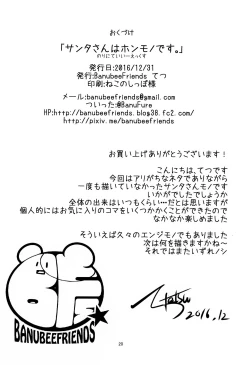 おくづけ
「サンタさんはホンモノです。」
のりにていい…えっくす
発行日:2016/12/31
発行:BanubeeFriends てつ
印刷:ねこのしっぽ様
メール:banubeefriends@gmail.com
ついった:@BanuFure
HP:http://banubeefriends.blog38.fc2.com/
http://pixiv.me/banubeefriends
お買い上げありがとうございます!
こんにちは、てつです
今回はアリがちなネタでありながら
一度も描いていなかったサンタさんモノです
いかがでしたでしょうか
全体の出来はいつもくらい…だとは思いますが
個人的にはお気に入りのコマをいくつかかくことができたので
なかなか楽しめました
そういえば久々のエンジモノでもありました
次は何を描きますかね~
それではまたいずれノシ
BF
BANUBEEFRIENDS
Tetsu
2016.12
20